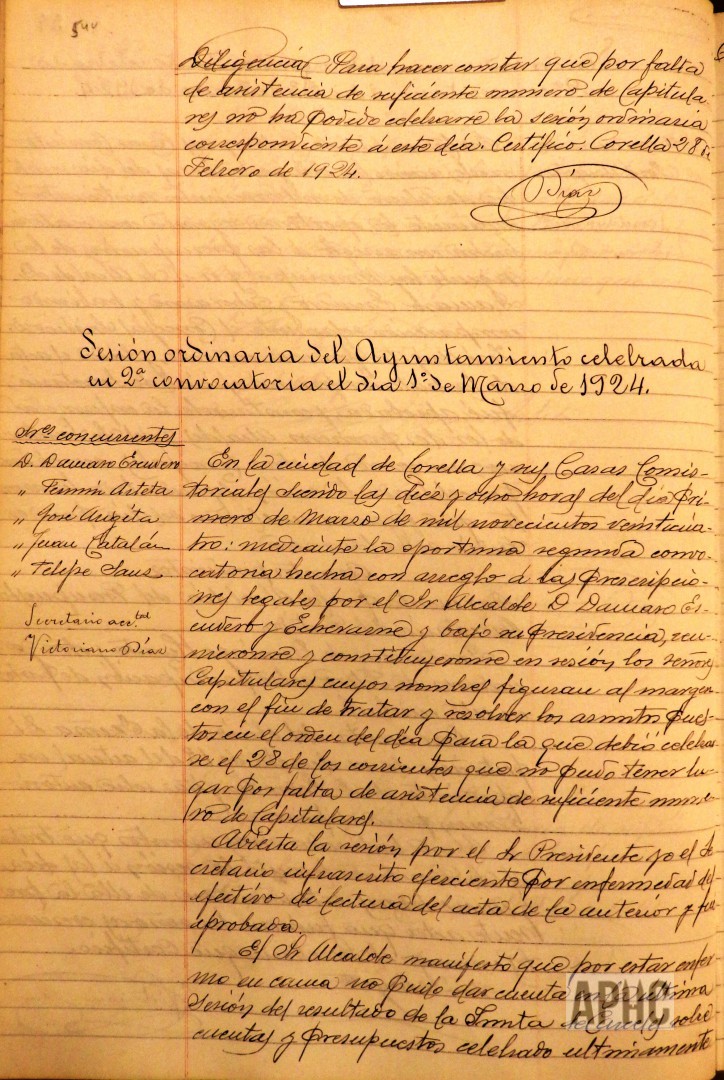 540
Diligencia Para hacer constar que por falta
de asistencia de suficiente numero de Capitula-
res no ha podido celebrarse la sesión ordinaria
correspondiente á este día. Certifico. Corella 28 de
Febrero de 1924.
Díaz
Sesión ordinaria del Ayuntamiento celebrada
en 2ª convocatoria el día 1º de Marzo de 1924.
Sres concurrentes
D. Damaso Escudero
" Fermin Arteta
" José Angita
" Juan Catalán
" Felipe Sanz
Secretario accetal
Victoriano Díaz
En la ciudad de Corella y sus Casas Consis-
toriales siendo las diez y ocho horas del día pri-
mero de Marzo de mil novecientos veinticua-
tro: mediante la oportuna segunda convo-
catoria hecha con arreglo á las prescripcio-
nes legales por el Sr Alcalde D Damaso Es-
cudero y Echevarne y bajo su presidencia, reu-
nieronse y constituyeronse en sesión los señores
Capitulares cuyos nombres figuran al margen
con el fin de tratar y resolver los asuntos pues-
tos en el orden del día para la que debió celebrar-
se el 28 de los corrientes que no pudo tener lu-
gar por falta de asistencia de suficiente nume-
ro de Capitulares.
Abierta la sesión por el Sr Presidente yo el Se-
cretario infrascrito ejerciente por enfermedad del
efectivo di lectura del acta de la anterior y fue
aprobada.
El Sr Alcalde manifestó que por estar enfer-
mo en cama no pudo dar cuenta en la ultima
Sesión del resultado de la Junta sobre
cuentas y presupuestos celebrado ultimamente
APHC